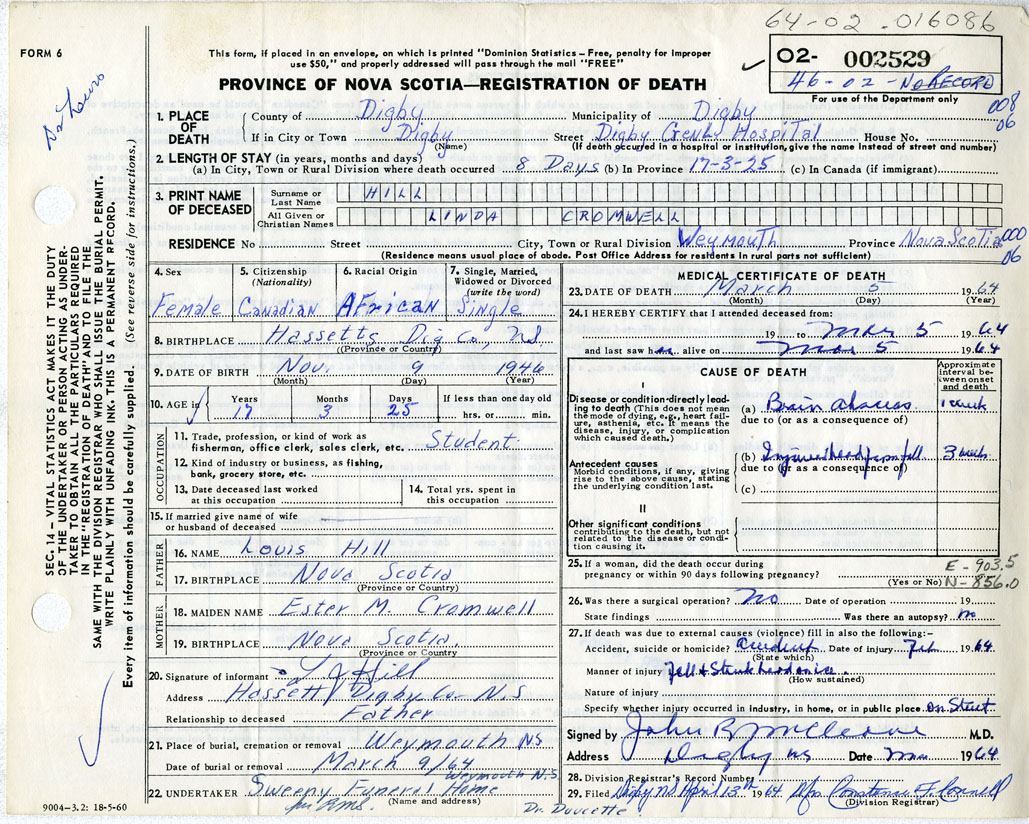 64-02-016086
FORM 6
This form, if placed in an envelope, on which is printed "Dominion Statistics – Free, penalty for improper
use $50," and properly addressed will pass through the mail "FREE"
02- 002529
46-02-No RECORD
For use of the Department only
PROVINCE OF NOVA SCOTIA—REGISTRATION OF DEATH
008
06
1. PLACE OF DEATH
County of Digby Municipality of Digby
If in City or Town Digby Street Digby Genl Hospital House No.
(Name) (If death occurred in a hospital or institution, give the name instead of street and number)
2. LENGTH OF STAY (in years, months and days)
(a) In City, Town or Rural Division where death occurred 8 Days (b) In Province 17-3-25 (c) In Canada (if immigrant)
3. PRINT NAME OF DECEASED
Surname or Last Name HILL
All Given or Christian Names LINDA CROMWELL
RESIDENCE No Street City, Town or Rural Division Weymouth Province Nova Scotia
000
06
(Residence means usual place of abode. Post Office Address for residents in rural parts not sufficient)
SEC. 14 – VITAL STATISTICS ACT MAKES IT THE DUTY
OF THE UNDERTAKER OR PERSON ACTING AS UNDER-
TAKER TO OBTAIN ALL THE PARTICULARS REQUIRED
IN THE "REGISTRATION OF DEATH" AND TO FILE THE
SAME WITH THE DIVISION REGISTRAR WHO SHALL ISSUE THE BURIAL PERMIT.
WRITE PLAINLY WITH UNFADING INK. THIS IS A PERMANENT RECORD.
Every item of information should be carefully supplied. (See reverse side for instructions.)
4. Sex Female
5. Citizenship (Nationality) Canadian
6. Racial Origin African
7. Single, Married, Widowed or Divorced (write the word) Single
8. BIRTHPLACE Hassetts Dig Co, N.S.
(Province or Country)
9. DATE OF BIRTH Nov. 9 1946
(Month) (Day) (Year)
10. AGE in Years 17 Months 3 Days 25 If less than one day old hrs. or min.
OCCUPATION
11. Trade, profession, or kind of work as
fisherman, office clerk, sales clerk, etc. Student
12. Kind of industry or business, as fishing,
bank, grocery store, etc.
13. Date deceased last worked
at this occupation
14. Total yrs. spent in
this occupation
15. If married give name of wife
or husband of deceased
FATHER
16. NAME Louis Hill
17. BIRTHPLACE Nova Scotia
(Province or Country)
MOTHER
18. MAIDEN NAME Ester M. Cromwell
19. BIRTHPLACE Nova Scotia
(Province or Country
20. Signature of informant L J Hill
Address Hassett Digby Co N.S
Relationship to deceased Father
21. Place of burial, cremation or removal Weymouth NS
Date of burial or removal March 9/64
22. UNDERTAKER Sweeny Funeral Home Weymouth N.S.
(Name and address)
9004-3.2: 18-5-60
Dr. Doucette
MEDICAL CERTIFICATE OF DEATH
23. DATE OF DEATH March 5 1964
(Month) (Day) (Year)
24. I HEREBY CERTIFY that I attended deceased from:
19 to Mar 5 1964
and last saw her alive on Mar 5 1964
CAUSE OF DEATH
Approximate interval between onset and death
I
Disease or condition directly lead-
ing to death (This does not mean
the mode of dying, e.g., heart fail-
ure, asthenia, etc. It means the
disease, injury, or complication
which caused death.)
(a) Brain abscess 1 week
due to (or as a consequence of)
Antecedent causes
Morbid conditions, if any, giving
rise to the above cause, stating
the underlying condition last.
(b) Injured head from fall 3 weeks
due to (or as a consequence of)
(c)
II
Other significant conditions
contributing to the death, but not
related to the disease or condi-
tion causing it.
25. If a woman, did the death occur during
pregnancy or within 90 days following pregnancy?
(Yes or No)
E-903.5
N-856.0
26. Was there a surgical operation? No Date of operation 19
State findings Was there an autopsy? no
27. If death was due to external causes (violence) fill in also the following:–
Accident, suicide or homicide? Accident Date of injury Feb 1964
(State which)
Manner of injury Fell & Struck head on ice.
(How sustained)
Nature of injury
Specify whether injury occurred in industry, in home, or in public place on Street
Signed by John R McCleave M.D.
Address Digby NS Date Mar 1964
28. Division Registrar's Record Number
29. Filed Digby NS April 13th 1964
(Division Registrar)